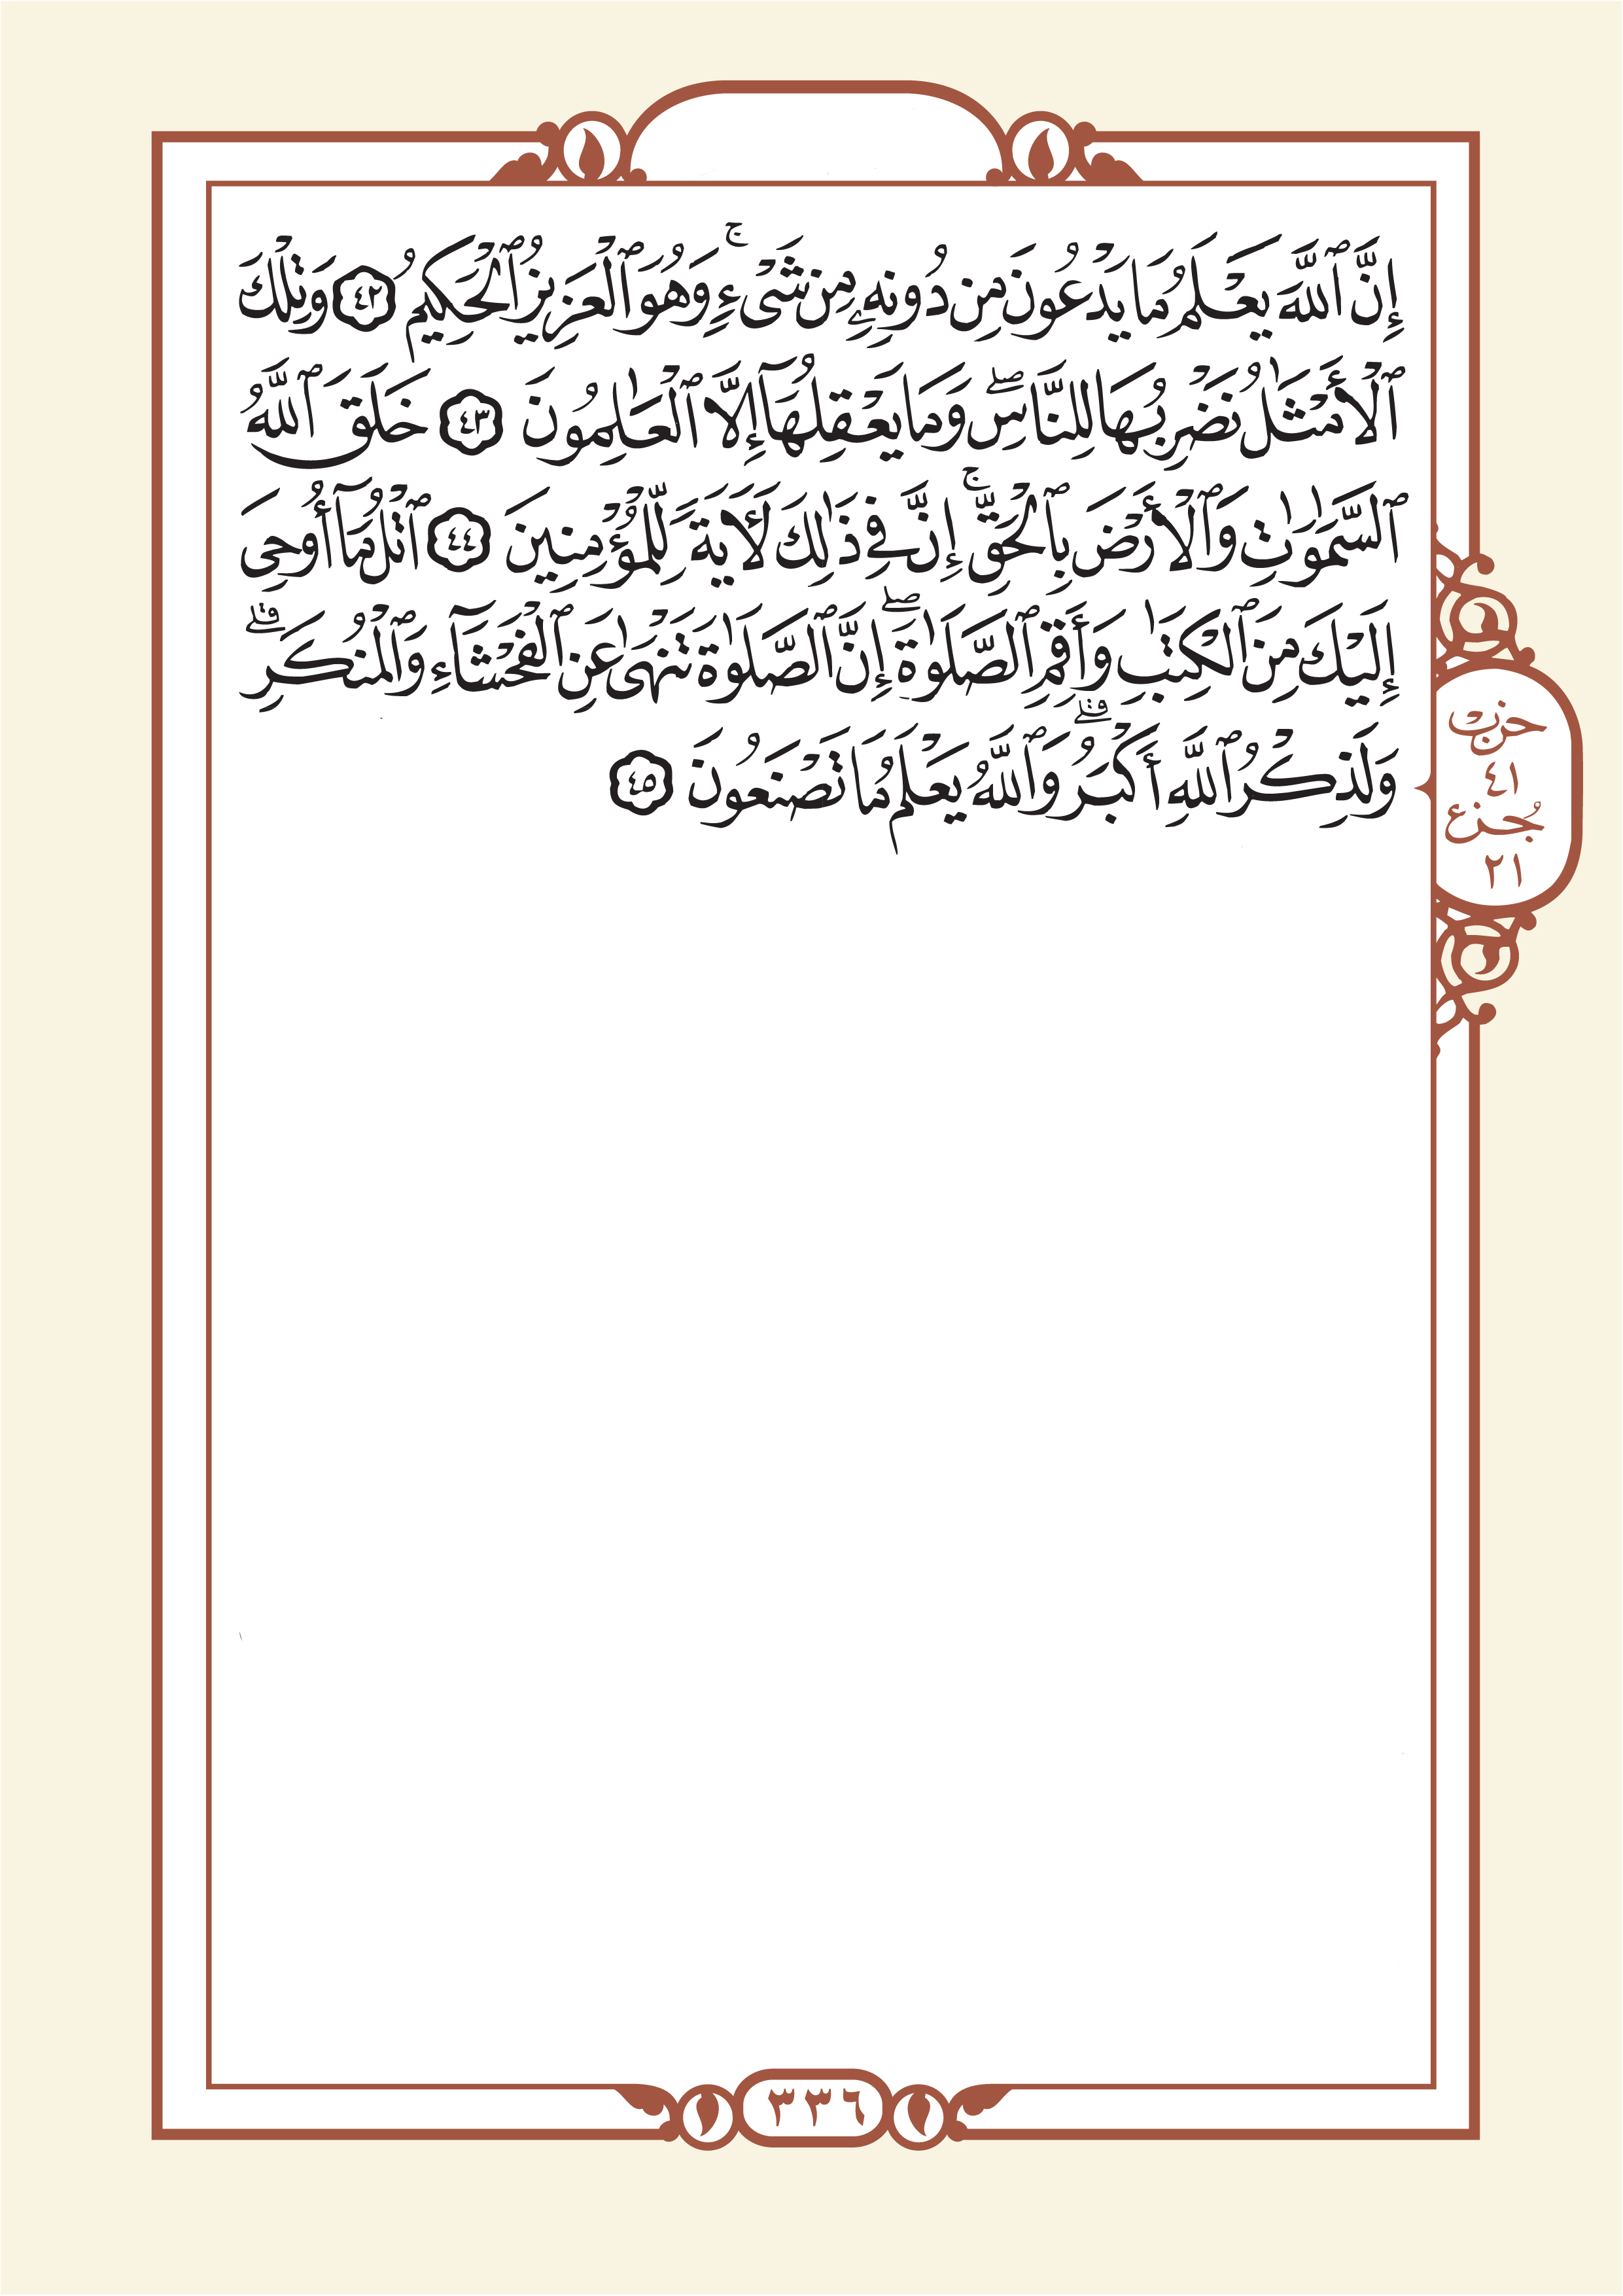 إِنَّ ٱللَّهَ يَعْلَمُ مَا يَدْعُونَ مِن دُونِهِۦ مِن شَىْءٍۚ وَهُوَ ٱلْعَزِيزُ ٱلْحَكِيمُ ٤٢ وَتِلْكَ
ٱلْأَمْثَٰلُ نَضْرِبُهَا لِلنَّاسِۖ وَمَا يَعْقِلُهَآ إِلَّا ٱلْعَٰلِمُونَ ٤٣ خَلَقَ ٱللَّهُ
ٱلسَّمَٰوَٰتِ وَٱلْأَرْضَ بِٱلْحَقِّۚ إِنَّ فِى ذَٰلِكَ لَأٓيَةً لِّلْمُؤْمِنِينَ ٤٤ ٱتْلُ مَآ أُوحِىَ
إِلَيْكَ مِنَ ٱلْكِتَٰبِ وَأَقِمِ ٱلصَّلَوٰةَۖ إِنَّ ٱلصَّلَوٰةَ تَنْهَىٰ عَنِ ٱلْفَحْشَآءِ وَٱلْمُنكَرِۗ
وَلَذِكْرُ ٱللَّهِ أَكْبَرُۗ وَٱللَّهُ يَعْلَمُ مَا تَصْنَعُونَ ٤٥
حزب
٤١
جُزء
٢١
٣٣٦